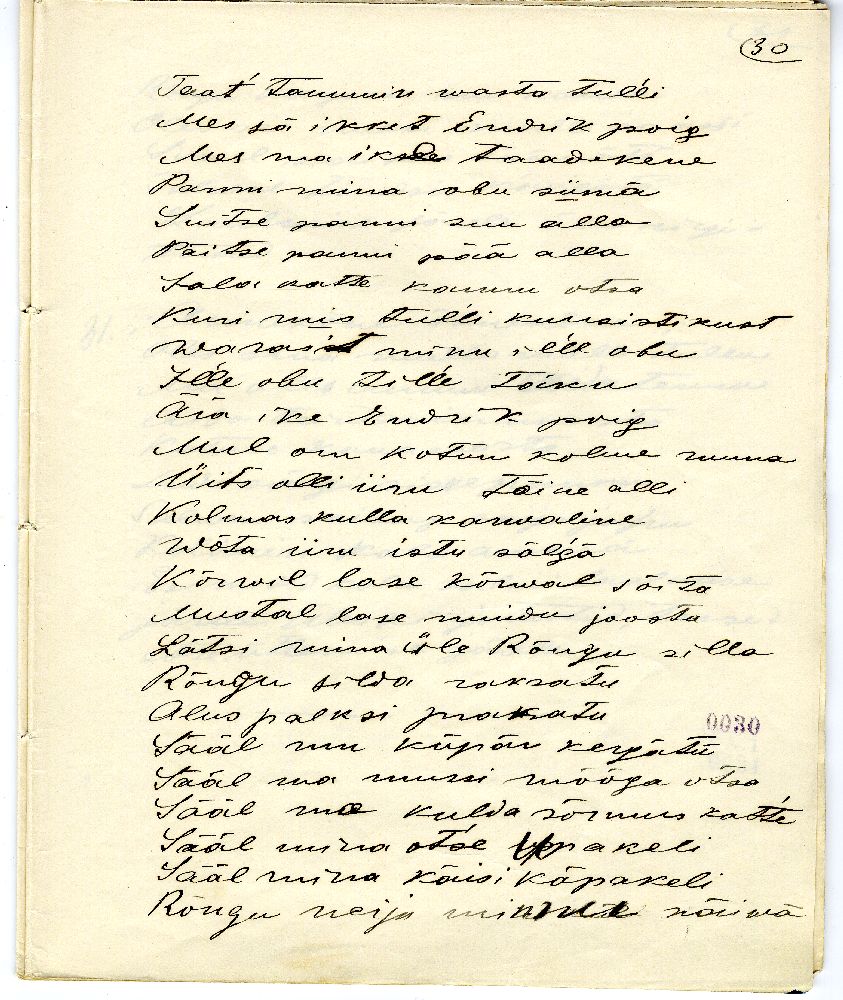 30
Taat' tammin wasta tul'li
Mes sä ikket Endrik poig
Mes ma ikke taadekene
Panni mina obu süma
Suitse panni suu alla
Päitse panni pää alla
Sala katte kannu otsa
Kuri mis tul'li kuusistikust
warast minu ill' obu
Ill'e obu till'e täku
Ära ike Endrik poig
Mul om kotun kolme ruuna
Üits olli iiru tõine alli
Kolmas kulla karwaline
Wõta iiru istu sälgä
Kõrwil lase kõrwal sõita
Mustal lase muidu joosta
Lätsi mina üle Rõngu silla
Rõngu silda raksatu
Alus palksi praksatu
Sääl mu küpär kergätü
Sääl ma mursi mõõga otsa
Sääl ma kulda sõrmus katte
Sääl mina otse upakeli
Sääl mina käisi käpakeli
Rõngu neija minnu näiwä
0030